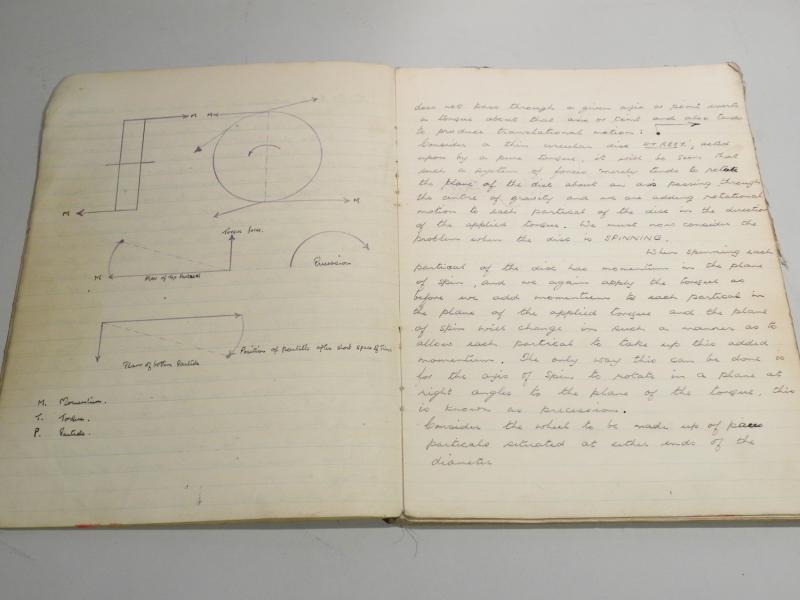 M
M
M
M
Torque force.
M
Plan of Top Particle
Precession
Position of particle after short space of Time
Plan of bottom Particle
M. Momentum.
T. Torque.
P. Particle.
does not pass through a given axis or point exerts
a torque about that axis or point and also tends
to produce translational motion:
Consider a thin circular disc AT REST, acted
upon by a pure torque, it will be seen that
such a system of forces merely tends to rotate
the plane of the disc about an axis passing through
the centre of gravity and we are adding rotational
motion to each partical of the disc in the direction
of the applied torque. We must now consider the
problem when the disc is SPINNING.
When spinning each
partical of the disc has momentum in the plane
of spin, and we again apply the torque as
before we add momentum to each partical in
the plane of the applied torque and the plane
of spin will change in such a manner as to
allow each partical to take up this added
momentum. The only way this can be done is
for the axis of spin to rotate in a plane at
right angles to the plane of the torque, this
is known as precession.
Consider the wheel to be made up of
particals situated at either ends of the
diameter